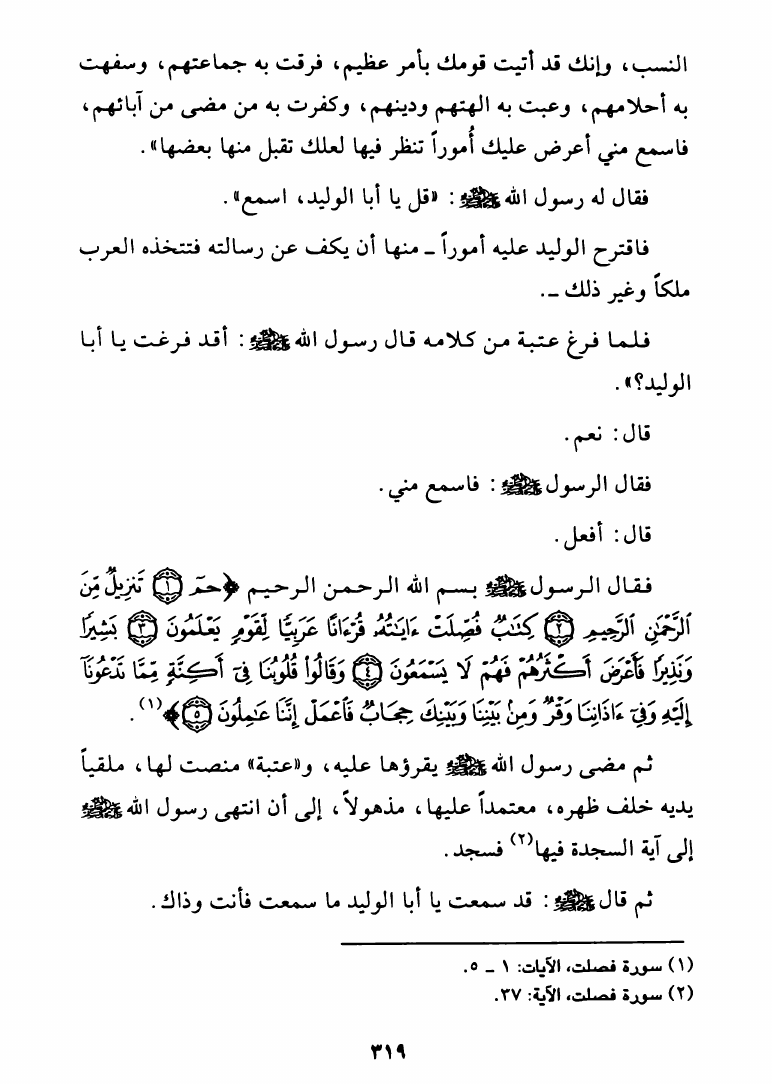 النسب، وإنك قد أتيت قومك بأمر عظيم، فرقت به جماعتهم، وسفهت
به أحلامهم، وعبت به الهتهم ودينهم، وكفرت به من مضى من آبائهم،
فاسمع مني أعرض عليك أُموراً تنظر فيها لعلك تقبل منها بعضها».
فقال له رسول الله ﷺ: «قل يا أبا الوليد، اسمع».
فاقترح الوليد عليه أموراً ـ منها أن يكف عن رسالته فتتخذه العرب
ملكاً وغير ذلك ـ.
فلما فرغ عتبة من كلامه قال رسول الله ﷺ: أقد فرغت يا أبا
الوليد؟».
قال: نعم.
فقال الرسول ﷺ: فاسمع مني.
قال: أفعل.
فقال الرسول ﷺ بسم الله الرحمن الرحيم ﴿حمٓ ۝١ تَنزِيلٌ مِّنَ
ٱلرَّحْمَٰنِ ٱلرَّحِيمِ ۝٢ كِتَٰبٌ فُصِّلَتْ ءَايَٰتُهُۥ قُرْءَانًا عَرَبِيًّا لِّقَوْمٍ يَعْلَمُونَ ۝٣ بَشِيرًا
وَنَذِيرًا فَأَعْرَضَ أَكْثَرُهُمْ فَهُمْ لَا يَسْمَعُونَ ۝٤ وَقَالُوا۟ قُلُوبُنَا فِىٓ أَكِنَّةٍ مِّمَّا تَدْعُونَآ
إِلَيْهِ وَفِىٓ ءَاذَانِنَا وَقْرٌ وَمِنۢ بَيْنِنَا وَبَيْنِكَ حِجَابٌ فَٱعْمَلْ إِنَّنَا عَٰمِلُونَ ۝٥﴾(١).
ثم مضى رسول الله ﷺ يقرؤها عليه، و«عتبة» منصت لها، ملقياً
يديه خلف ظهره، معتمداً عليها، مذهولاً، إلى أن انتهى رسول الله ﷺ
إلى آية السجدة فيها(٢) فسجد.
ثم قال ﷺ: قد سمعت يا أبا الوليد ما سمعت فأنت وذاك.
(١) سورة فصلت، الآيات: ١ ـ ٥.
(٢) سورة فصلت، الآية: ٣٧.
٣١٩